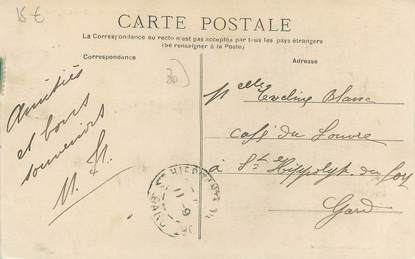 15 €
CARTE POSTALE
La Correspondance au recto n'est pas acceptée par tous les pays étrangers
(se renseigner à la Poste)
Correspondance
Adresse
30
Amitiés
et bons
souvenirs
Melle Eveline Blanc
Café du Louvre
à St Hippolyte du Fort
Gard
GARD